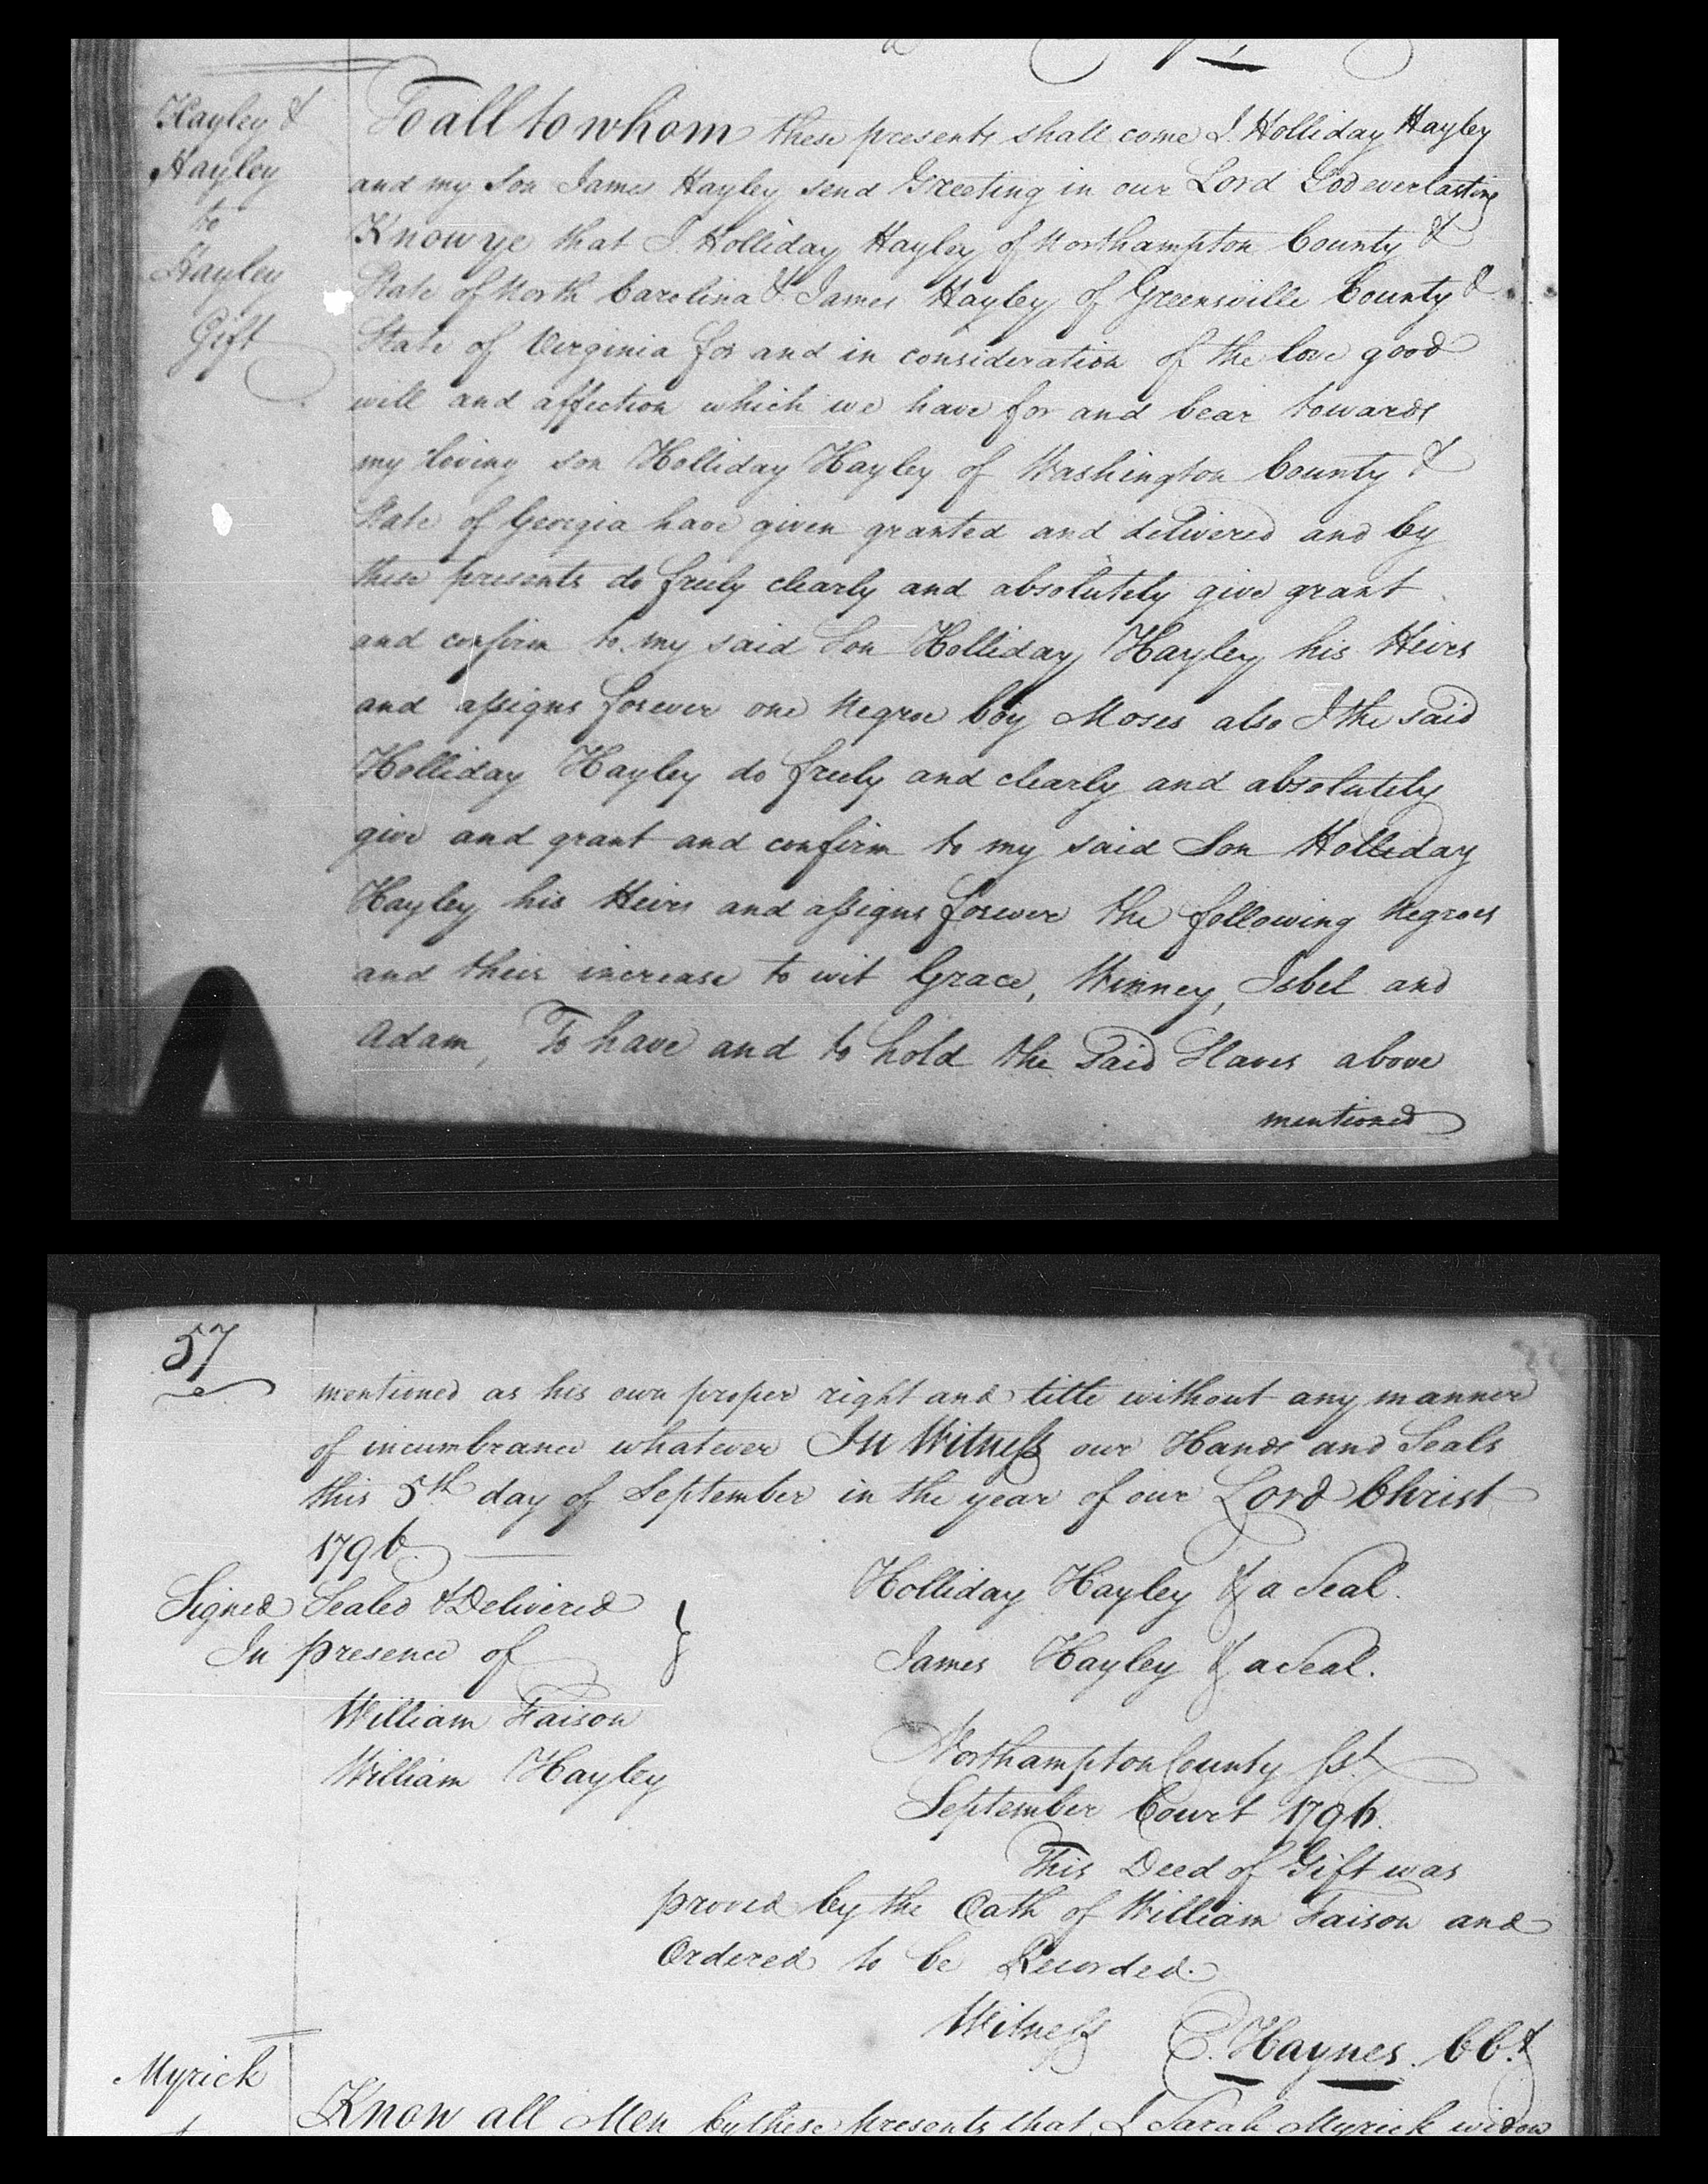 Hayley &
Hayley
to
Hayley
Gift
To all to whom these presents shall come I Holliday Hayley
and my Son James Hayley send Greeting in our Lord God everlasting
Know ye that I Holliday Hayley of Northampton County &
State of North Carolina & James Hayley of Greensville County &
State of Virginia for and in consideration of the love good
will and affection which we have for and bear towards
my loving son Holliday Hayley of Washington County &
State of Georgia have given granted and delivered and by
these presents do freely clearly and absolutely give grant
and confirm to my said Son Holliday Hayley his Heirs
and assigns forever one Negroe boy Moses also I the said
Holliday Hayley do freely and clearly and absolutely
give and grant and confirm to my said Son Holliday
Hayley his Heirs and assigns forever the following Negroes
and their increase to wit Grace, Winney, Isbel and
Adam, To have and to hold the said Slaves above
mentioned
57
mentioned as his own proper right and title without any manner
of incumbrance whatever In Witness our Hands and Seals
this 5th day of September in the year of our Lord Christ
1796
Signed Sealed & Delivered
In presence of
William Faison
William Hayley
Holliday Hayley & a Seal.
James Hayley & a Seal.
Northampton County Sst
September Court 1796.
This Deed of Gift was
proved by the Oath of William Faison and
Ordered to be Recorded.
Witness E. Haynes. CCt
Myrick
Know all Men by these presents that I Sarah Myrick widow